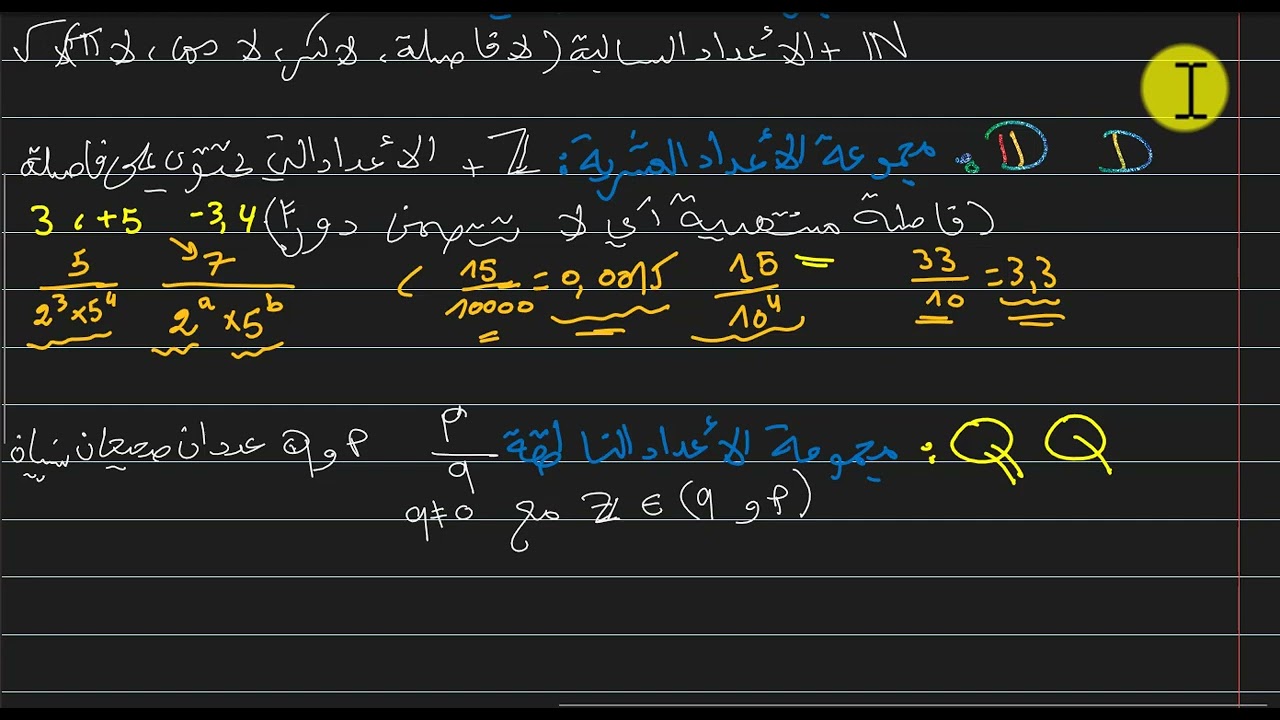 IN + الأعداد السالبة (لا فاصلة، لا كسر، لا cos، لا π √
D D : مجموعة الأعداد العشرية : Z + الأعداد التي تحتوي على فاصلة
(فاصلة منتهية أي لا تتضمن دورًا) -3,4 +5 ، 3
33/10 = 3,3 15/10^4 15/10000 = 0,0015 7/(2^a × 5^b) 5/(2^3 × 5^4)
Q Q : مجموعة الأعداد الناطقة p/q p و q عددان صحيحان
(p و q) ∈ Z مع q≠0